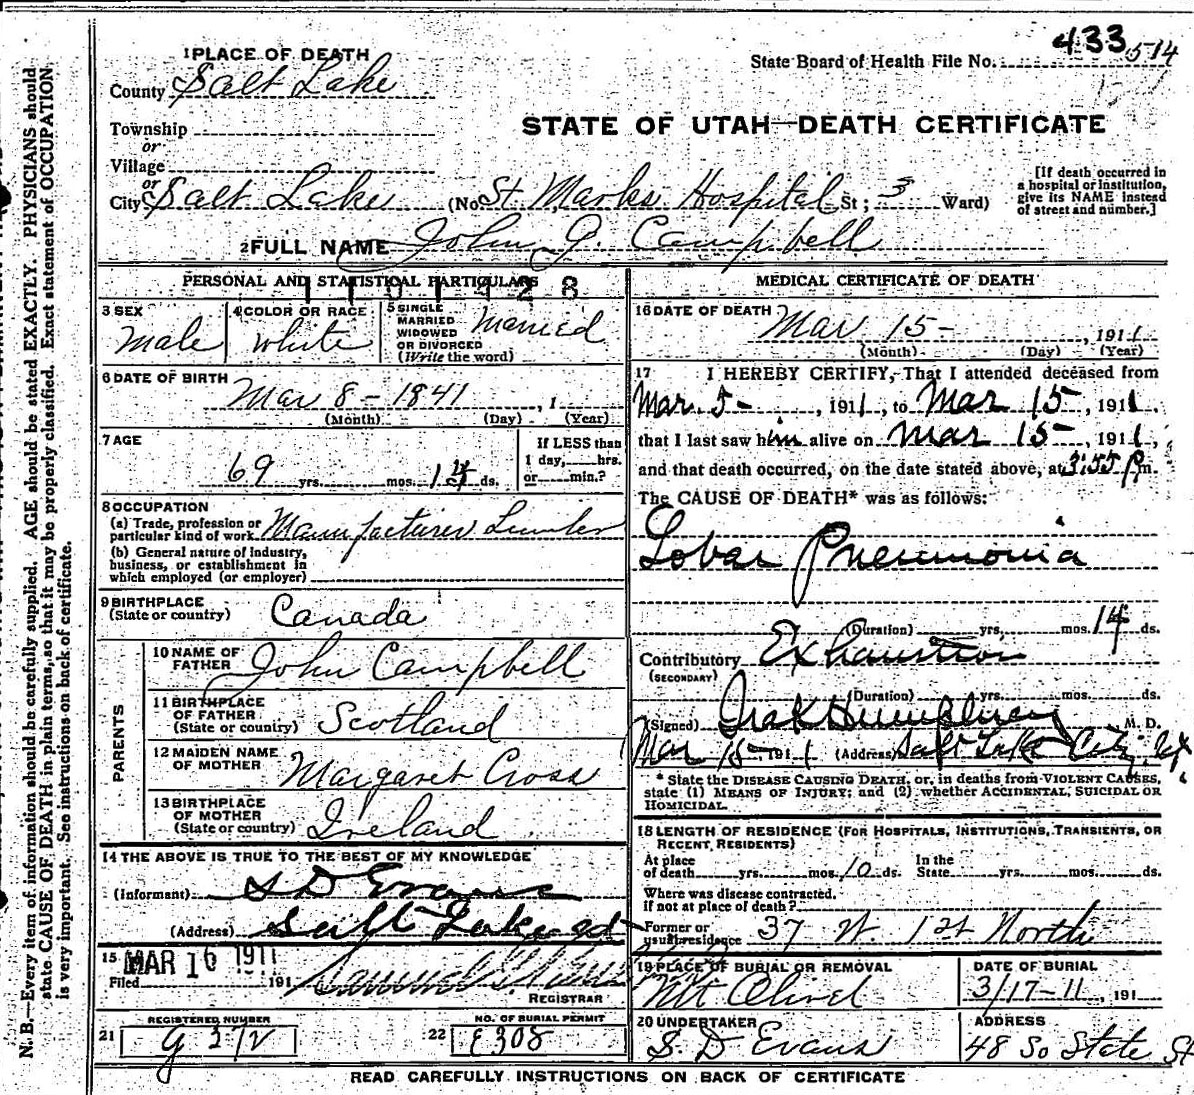 433 514
State Board of Health File No.
1 PLACE OF DEATH
County Salt Lake
Township
or
Village
or
City Salt Lake (No. St Marks Hospital St; 3 Ward)
STATE OF UTAH—DEATH CERTIFICATE
[If death occurred in
a hospital or institution,
give its NAME instead
of street and number.]
2 FULL NAME John J. Campbell
PERSONAL AND STATISTICAL PARTICULARS
3 SEX Male
4 COLOR OR RACE White
5 SINGLE
MARRIED
WIDOWED
OR DIVORCED
(Write the word) Married
6 DATE OF BIRTH
Mar 8 - 1841, 1
(Month) (Day) (Year)
7 AGE
69 yrs. mos. 14 ds.
If LESS than
1 day, hrs.
or min.?
8 OCCUPATION
(a) Trade, profession or
particular kind of work Manufacturer Lumber
(b) General nature of industry,
business, or establishment in
which employed (or employer)
9 BIRTHPLACE
(State or country) Canada
PARENTS
10 NAME OF
FATHER John Campbell
11 BIRTHPLACE
OF FATHER
(State or country) Scotland
12 MAIDEN NAME
OF MOTHER Margaret Cross
13 BIRTHPLACE
OF MOTHER
(State or country) Ireland
14 THE ABOVE IS TRUE TO THE BEST OF MY KNOWLEDGE
(Informant) S D Evans
(Address) Salt Lake
15 MAR 16 1911
Filed 191
REGISTRAR
REGISTERED NUMBER
21
NO. OF BURIAL PERMIT
22 E308
MEDICAL CERTIFICATE OF DEATH
16 DATE OF DEATH Mar 15 - , 1911
(Month) (Day) (Year)
17 I HEREBY CERTIFY, That I attended deceased from
Mar. 5 - , 1911, to Mar 15, 1911.
that I last saw him alive on Mar 15 - , 1911,
and that death occurred, on the date stated above, at 3:55 P m.
The CAUSE OF DEATH* was as follows:
Lobar Pneumonia
(Duration) yrs. mos. 14 ds.
Contributory Exhaustion
(SECONDARY)
(Duration) yrs. mos. ds.
(Signed) Humphrey M. D.
Mar 15 - 1911 (Address) Salt Lake City, Ut
* State the DISEASE CAUSING DEATH, or, in deaths from VIOLENT CAUSES,
state (1) MEANS OF INJURY; and (2) whether ACCIDENTAL, SUICIDAL OR
HOMICIDAL.
18 LENGTH OF RESIDENCE (FOR HOSPITALS, INSTITUTIONS, TRANSIENTS, OR
RECENT RESIDENTS)
At place
of death yrs. mos. 10 ds. In the
State yrs. mos. ds.
Where was disease contracted,
if not at place of death?
Former or
usual residence 37 W. 1st North
19 PLACE OF BURIAL OR REMOVAL
Mt Olivet
DATE OF BURIAL
3/17-11, 191
20 UNDERTAKER
S. D Evans
ADDRESS
48 So State St
READ CAREFULLY INSTRUCTIONS ON BACK OF CERTIFICATE
N. B.—Every item of information should be carefully supplied. AGE should be stated EXACTLY. PHYSICIANS should
state CAUSE OF DEATH in plain terms, so that it may be properly classified. Exact statement of OCCUPATION
is very important. See instructions on back of certificate.